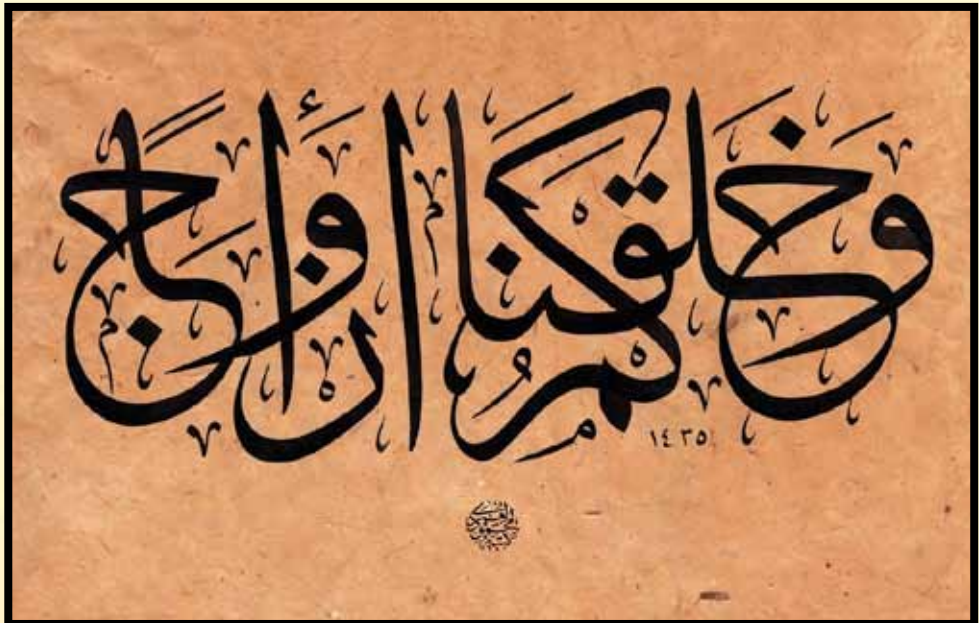 وَخَلَقْنَاكُمْ أَزْوَاجًا
١٤٣٥